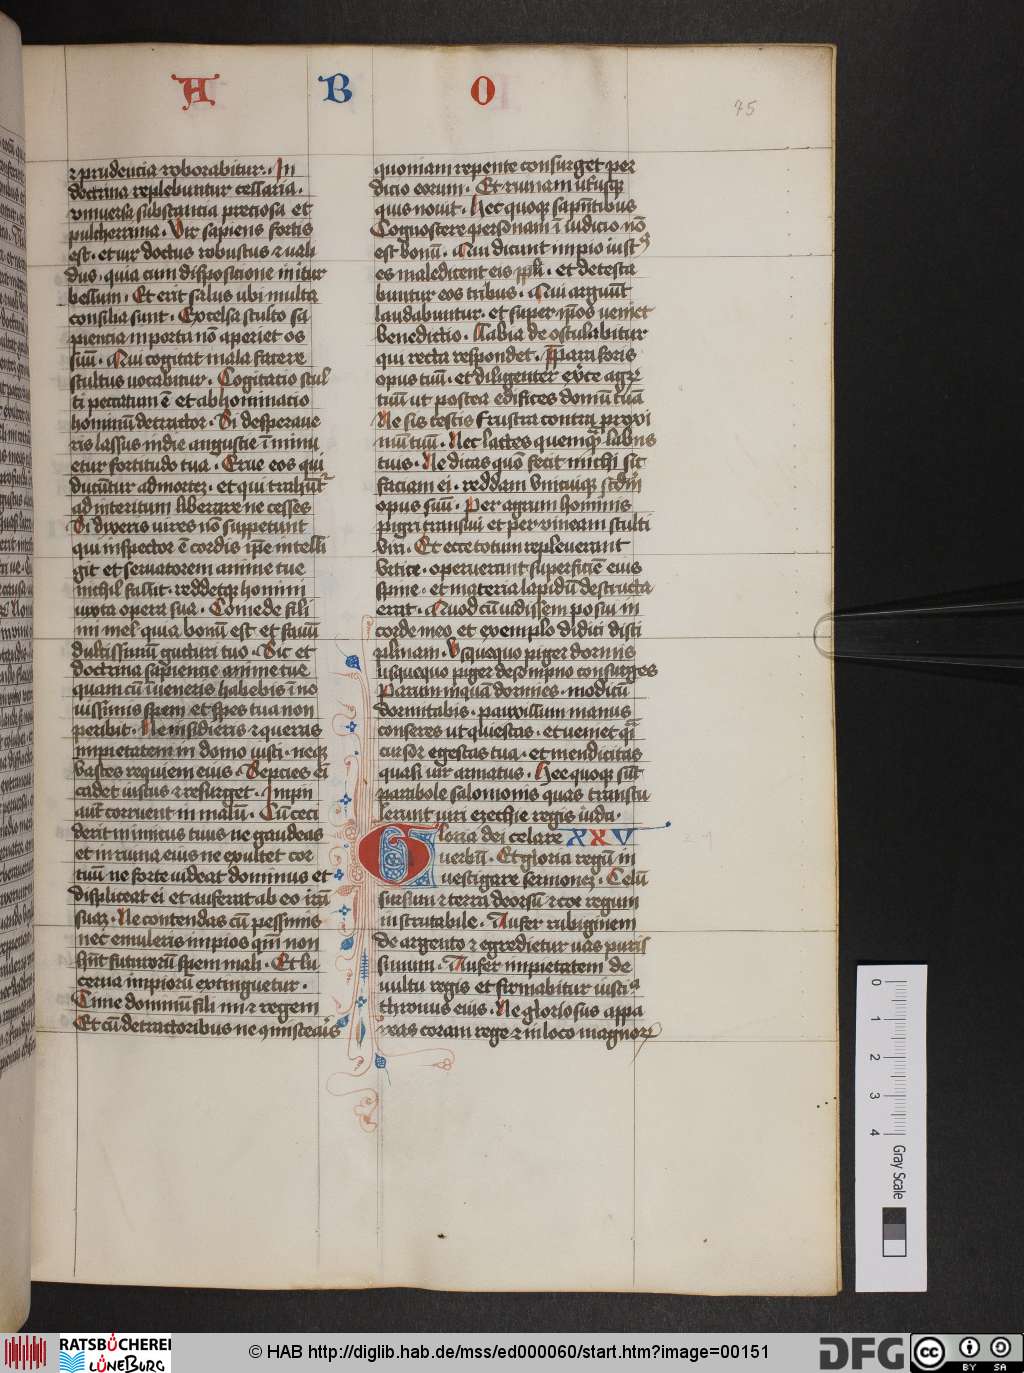 A B O
75
⁊ prudencia roborabitur · In
doctrina replebuntur cellaria ·
vniuersa substancia preciosa et
pulcherrima · Vir sapiens fortis
est · et uir doctus robustus ⁊ uali
dus · quia cum disposicione initur
bellum · Et erit salus ubi multa
consilia sunt · Excelsa stulto sa
piencia in porta nō aperiet os
suū · Qui cogitat mala facere
stultus uocabitur · Cogitatio stul
ti peccatum ē et abhominatio
hominū detractor · Si desperaue
ris lassus in die angustie īminu
etur fortitudo tua · Erue eos qui
ducūtur ad mortez · et qui trahūt᷑
ad interitum liberare ne cesses
Si dixeris uires nō suppetunt
qui inspector ē cordis ip̄e intelli
git et seruatorem anime tue
nichil fallit · reddetqꝫ homini
iuxta opera sua · Comede fili
mi mel quia bonū est et fauū
dulcissimū gutturi tuo · Sic et
doctrina sapiencie anime tue
quam cū īueneris habebis ī no
uissimis spem et spes tua non
peribit · Ne insidieris ⁊ queras
impietatem in domo iusti · neqꝫ
vastes requiem eius · Septies eī
cadet iustus ⁊ resurget · Impii
aūt corruent in malū · Cū ceci
derit inimicus tuus ne gaudeas
et in ruina eius ne exultet cor
tuū ne forte uideat dominus et
displiceat ei et auferat ab eo irā
suaz · Ne contendas cū pessimis
nec emuleris impios qm̄ non
hn̄t futurorū spem mali · Et lu
cerna impiorū extinguetur ·
Time dominū fili mi ⁊ regem
Et cū detractoribus ne ꝯmiscearis
quoniam repente consurget per
dicio eorum · Et ruinam utriusqꝫ
quis nouit · Hec quoqꝫ sapiētibus
Cognoscere personam ī iudicio nō
est bonū · Qui dicunt impio iustꝰ
es maledicent eis pp̄li · et detesta
buntur eos tribus · Qui arguūt
laudabuntur · et super ip̄os ueniet
benedictio · Labia deosculabitur
qui recta respondet · Prepara foris
opus tuū · et diligenter ex̄ce agrū
tuū ut postea edifices domū tuā
Ne sis testis frustra contra proxi
mū tuū · Nec lactes quemqꝫ labiis
tuis · Ne dicas quō fecit michi sic
faciam ei · reddam vnicuiqꝫ scd̄m
opus suū · Per agrum hominis
pigri transiui et per vineam stulti
viri · Et ecce totum repleuerant
vrtice · operuerant superficiē eius
spine · et materia lapidū destructa
erat · Quod cū uidissem posui in
corde meo et exemplo didici disci
plinam · Vsquequo piger dormis
usquequo piger de sompno consurges
Parum inquā dormies · modicū
dormitabis · pauxillum manus
conseres ut q̇escas · et ueniet q̄i
cursor egestas tua · et mendicitas
quasi uir armatus · Hee quoqꝫ sūt
parabole salomonis quas transtu
lerunt uiri ezechie regis iuda ·
Gloria dei celare XXV
uerbū · Et gloria regū in
uestigare sermonez · Celū
sursum ⁊ terra deorsū ⁊ cor regum
inscrutabile · Aufer rubiginem
de argento ⁊ egredietur uas puris
simum · Aufer impietatem de
uultu regis et firmabitur iusticia
thronus eius · Ne gloriosus appa
reas coram rege ⁊ in loco magnorꝫ
0 1 2 3 4
Gray Scale
RATSBÜCHEREI
LÜNEBURG
© HAB http://diglib.hab.de/mss/ed000060/start.htm?image=00151
DFG
CC BY SA